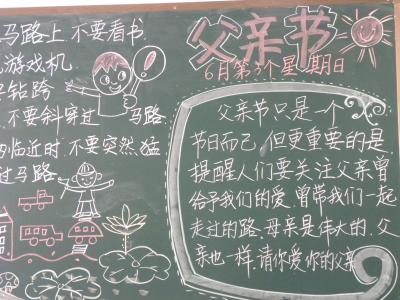 马路上,不要看书
游戏机
钻跨
不要斜穿过马路.
临近时,不要突然猛
过马路.
父亲节
6月第3个星期日
父亲节只是一个
节日而已,但更重要的是,
提醒人们要关注父亲曾
给予我们的爱,曾带我们一起
走过的路.母亲是伟大的.父
亲也一样.请你爱你的父亲